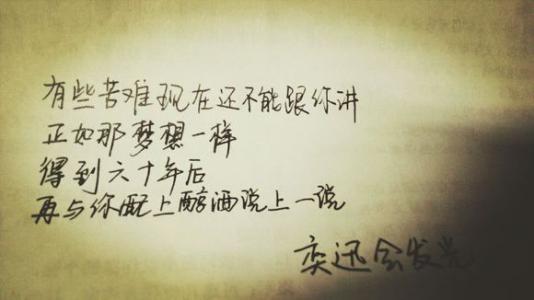 有些苦难现在还不能跟你讲
正如那梦想一样
得到六十年后
再与你配上醇酒说上一说
奕迅会发光